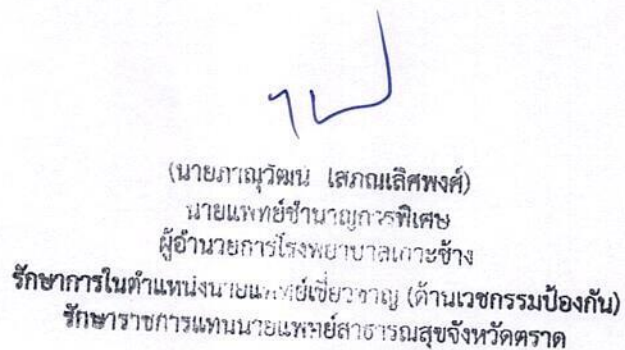 (นายภาณุวัฒน์ โสภณเลิศพงศ์)
นายแพทย์ชำนาญการพิเศษ
ผู้อำนวยการโรงพยาบาลเกาะช้าง
รักษาการในตำแหน่งนายแพทย์เชี่ยวชาญ (ด้านเวชกรรมป้องกัน)
รักษาราชการแทนนายแพทย์สาธารณสุขจังหวัดตราด